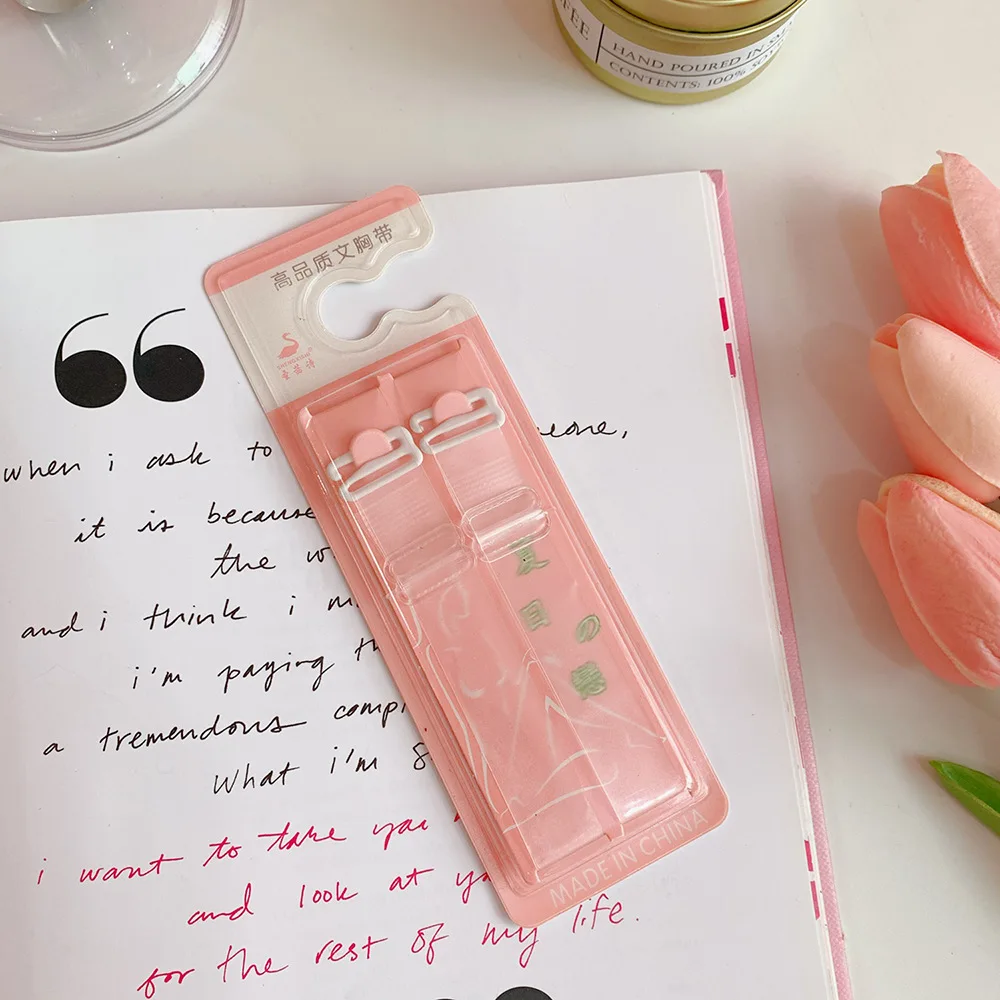 FEE
HAND POURED IN
CONTENTS: 100%
高品质文胸带
圣茜诗
夏目
の
MADE IN CHINA
when i ask to
it is because
the
and i think i
i'm paying
a tremendous
What i'm
i want to take you
and look at
for the rest of my life.